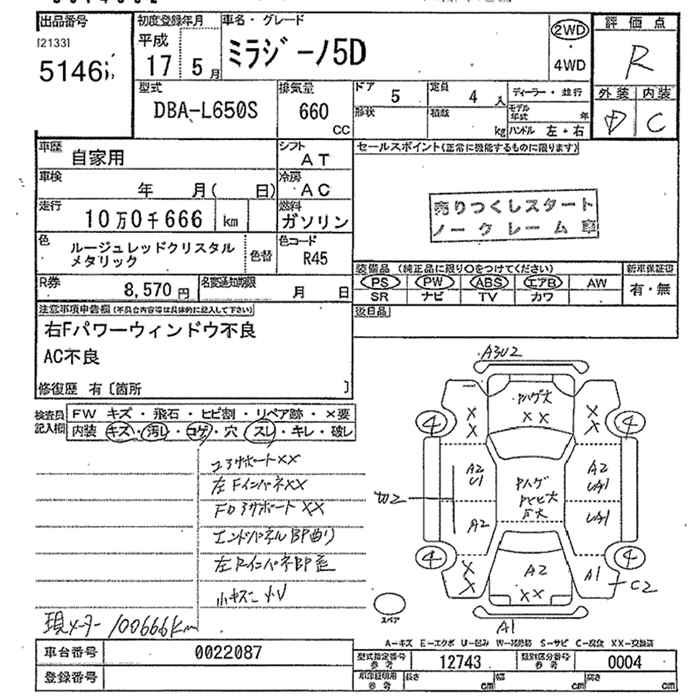 出品番号
[2133]
初度登録年月
平成
17 5月
車名・グレード
ミラジーノ5D
2WD
・
4WD
評価点
R
型式
DBA-L650S
排気量
660
CC
ドア
5
定員
4 人
形状
積載
kg
ディーラー・並行
モデル年式 年
ハンドル 左・右
外装 内装
D C
車歴
自家用
シフト
AT
車検
年 月( 日)
冷房
AC
走行
10万0千666 km
燃料
ガソリン
色
ルージュレッドクリスタル
メタリック
色替
色コード
R45
R券
8,570円
名変通知期限
月 日
セールスポイント(正常に機能するものに限ります)
売りつくしスタート
ノークレーム車
装備品 (純正品に限り○をつけてください)
新車保証書
PS PW ABS エアB AW
SR ナビ TV カワ
有・無
後日品
注意事項申告欄(不具合内容等は具体的に記入して下さい)
右Fパワーウィンドウ不良
AC不良
修復歴 有〔箇所 〕
検査員
記入欄
FW キズ・飛石・ヒビ割・リペア跡・×要
内装 キズ・汚レ・コゲ・穴・スレ・キレ・破レ
コアサポートXX
左FインパネXX
エンドパネルBP曲り
現メーター100666Km
A3U2
Pハゲ大
XX
XX
XX
4
4
A2
U1
A2
A2
UA1
UA1
Pハゲ
4
4
XX
A2
XX
A1
C2
A1
スペア
A-キズ E-エクボ U-凹み S-サビ C-腐食 XX-交換済
車台番号
0022087
登録番号
型式指定番号
参考
12743
類別区分番号
参考
0004
長さ cm
幅 cm
高さ cm